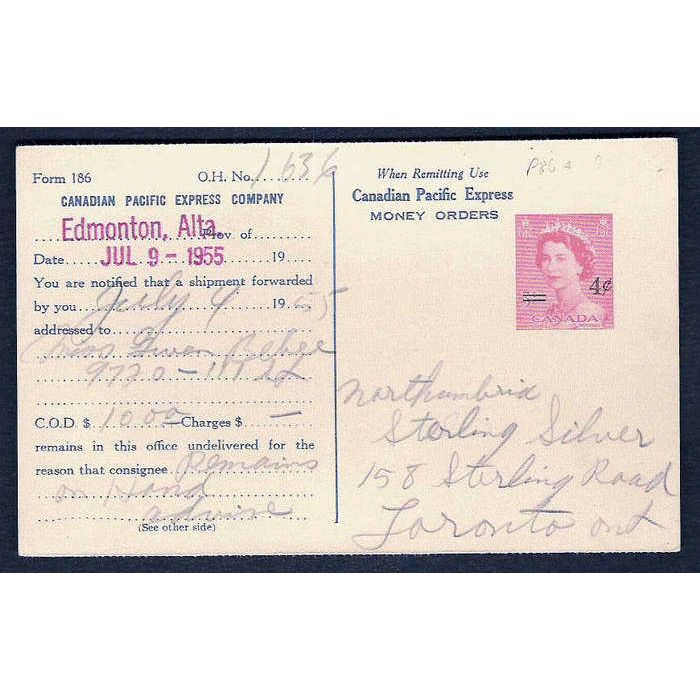 Form 186 O.H. No. 1636
CANADIAN PACIFIC EXPRESS COMPANY
Edmonton, Alta. Prov of
Date JUL 9 - 1955 19
You are notified that a shipment forwarded
by you July 4 1955
addressed to
Miss Gwen
9720 - 111 St
C.O.D. $ 10.00 Charges $ —
remains in this office undelivered for the
reason that consignee Remains
on Hand
advise
(See other side)
When Remitting Use
Canadian Pacific Express
MONEY ORDERS
P86a ?
4¢
CANADA
Northumbria
Sterling Silver
158 Sterling Road
Toronto Ont